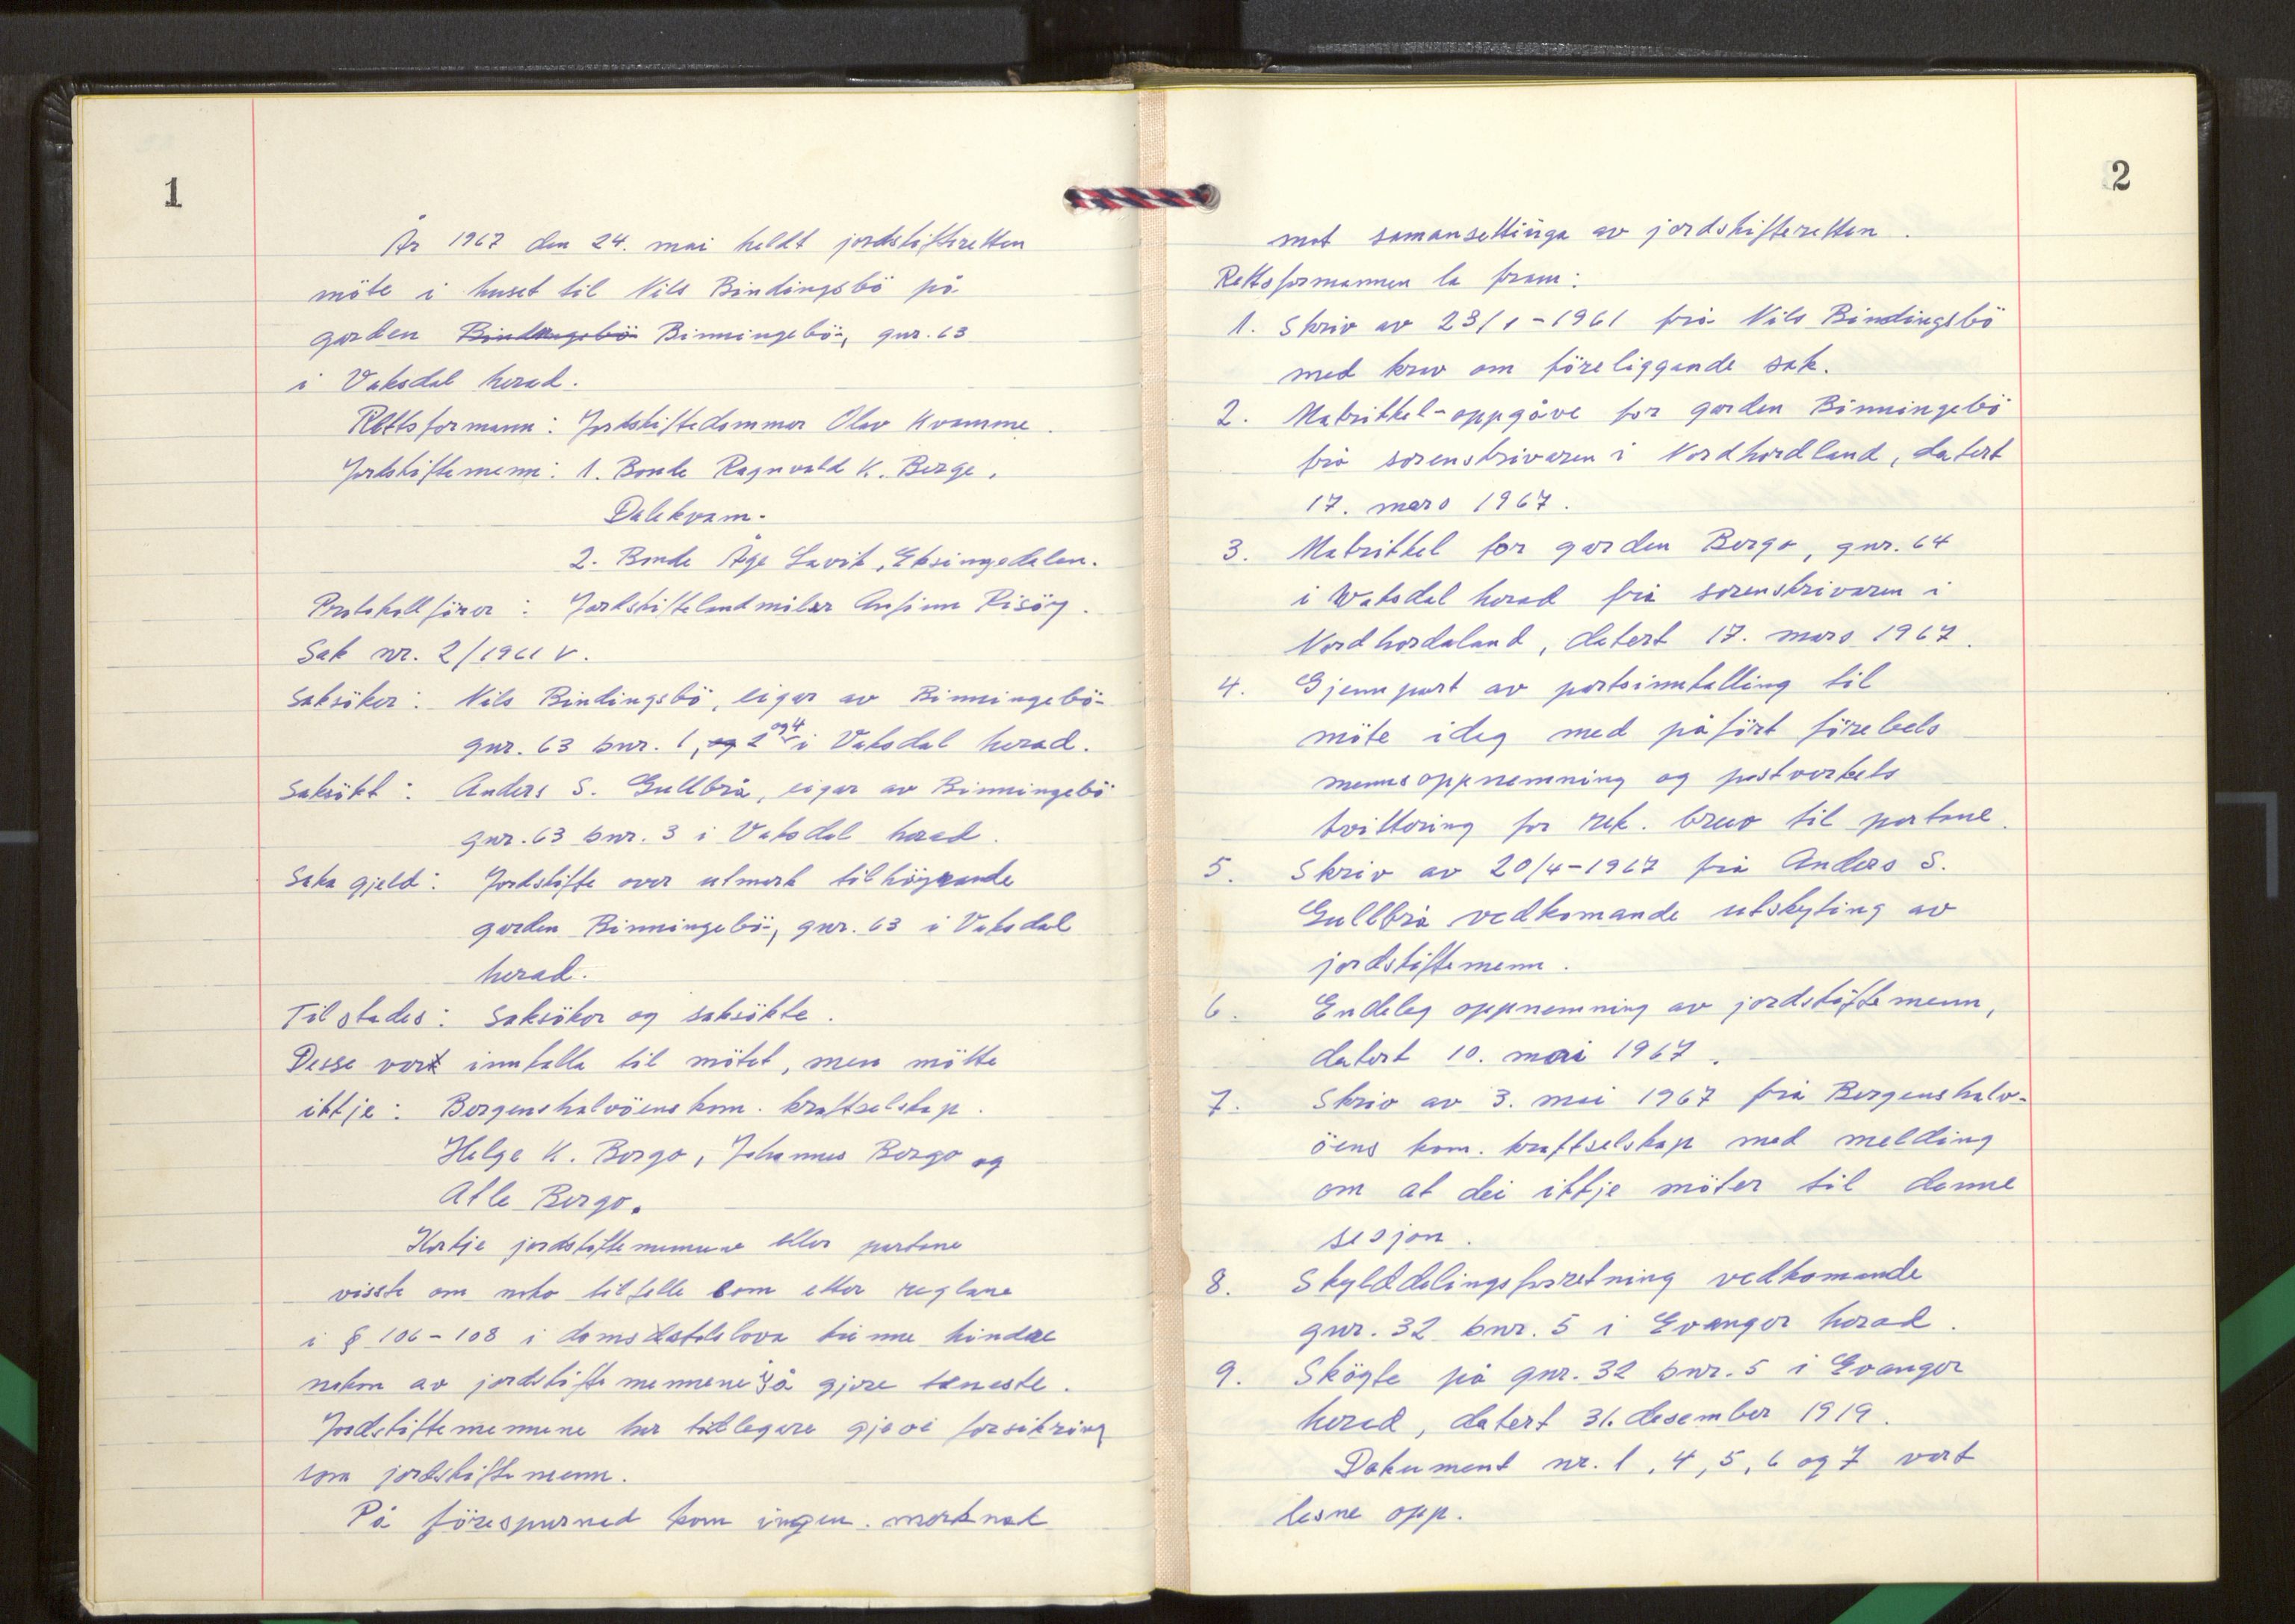 1
År 1967 den 24. mai heldt jordskifteretten
möte i huset til Nils Bindingsbö på
garden Bindingebö Binningebö, gnr. 63
i Vaksdal herad.
Rettsformann: Jordskiftedommar Olav Kvamme.
Jordskiftemenn: 1. Bonde Ragnvald K. Berge,
Dalekvam.
2. Bonde Åge Lavik, Eksingedalen.
Protokollförer: Jordskiftelandmålar Anfinn Risöy.
Sak nr. 2/1961 V.
Saksöker: Nils Bindingsbö, eigar av Binningebö
gnr. 63 bnr. 1, og 2 og 4 i Vaksdal herad.
Saksökt: Anders S. Gullbrå, eigar av Binningebö
gnr. 63 bnr. 3 i Vaksdal herad.
Saka gjeld: Jordskifte over utmark tilhöyrande
garden Binningebö, gnr. 63 i Vaksdal
herad.
Tilstades: Saksöker og saksökte.
Desse vart innkalla til mötet, men mötte
ikkje: Bergenshalvöens kom. kraftselskap.
Helge K. Bergo, Johannes Bergo og
Atle Bergo.
Korkje jordskiftemennene eller partane
visste om noko tilfelle som etter reglane
i § 106-108 i domstolslova kunne hindre
nokon av jordskiftemennene i å gjere teneste.
Jordskiftemennene har tidlegare gjeve forsikring
som jordskiftemenn.
På förespurnad kom ingen merknad
2
mot samansettinga av jordskifteretten.
Rettsformannen la fram:
1. Skriv av 23/1-1961 frå Nils Bindingsbö
med krav om föreliggande sak.
2. Matrikkel-oppgåve for garden Binningebö
frå sorenskrivaren i Nordhordland, datert
17. mars 1967.
3. Matrikkel for garden Bergo, gnr. 64
i Vaksdal herad frå sorenskrivaren i
Nordhordaland, datert 17. mars 1967.
4. Gjennpart av partsinnkalling til
möte idag med påfört förebels
mennsoppnemning og postverkets
kvittering for rek. brev til partane.
5. Skriv av 20/4-1967 frå Anders S.
Gullbrå vedkomande utskyting av
jordskiftemenn.
6. Endeleg oppnemning av jordskiftemenn,
datert 10. mai 1967.
7. Skriv av 3. mai 1967 frå Bergenshalv-
öens kom. kraftselskap med melding
om at dei ikkje möter til denne
sesjon.
8. Skylddelingsforretning vedkomande
gnr. 32 bnr. 5 i Evanger herad.
9. Sköyte på gnr. 32 bnr. 5 i Evanger
herad, datert 31. desember 1919.
Dokument nr. 1, 4, 5, 6 og 7 vart
lesne opp.